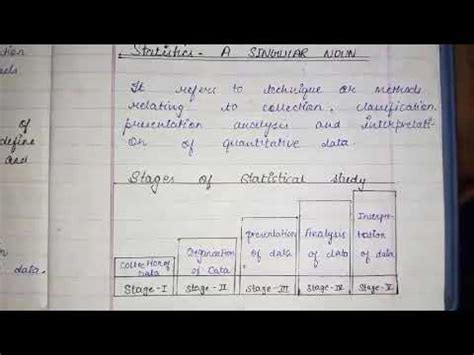 Statistics - A SINGULAR NOUN
It refers to technique or methods
relating to collection, classification
presentation analysis and interpretati-
on of quantitative data.
Stages of Statistical study
Collection of Data
Organisation of Data
presentation of data
Analysis of data
Interpretation of data
Stage-I
Stage-II
Stage-III
Stage-IV
Stage-V
of
define
and
data.